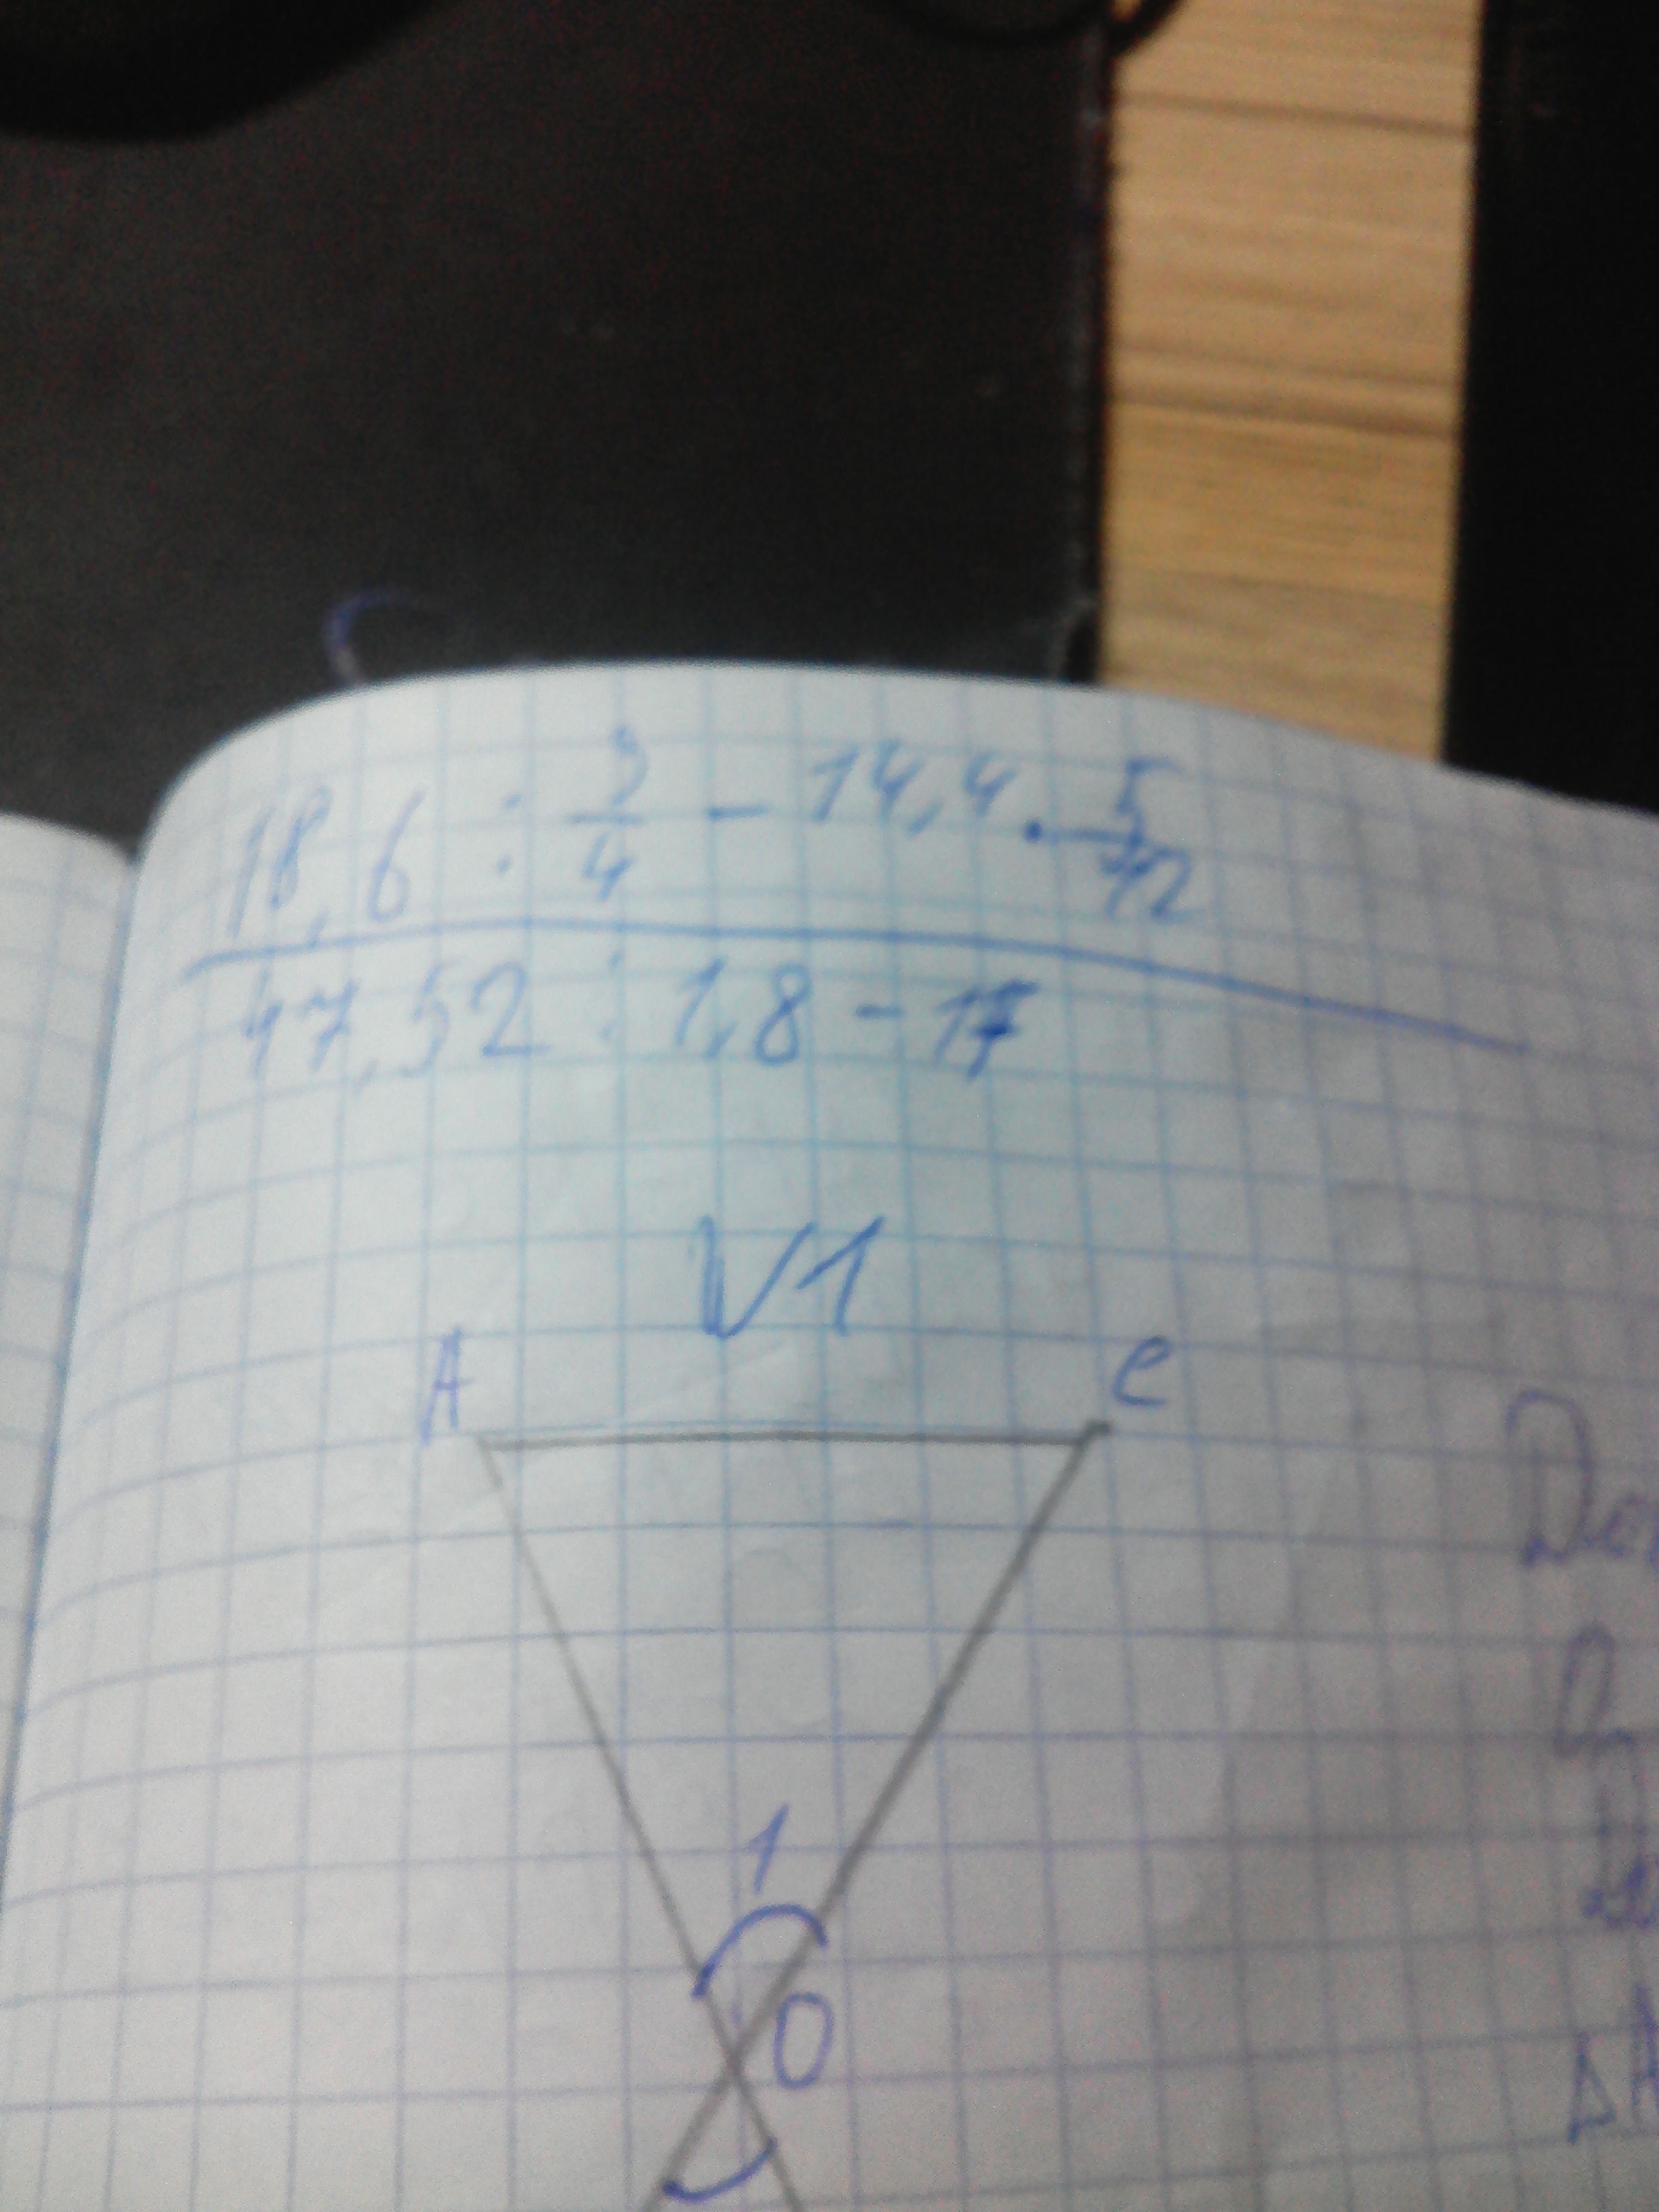 18,6 : 3/4 - 14,4 · 5/12
47,52 : 1,8 - 17
V1
A C
1
O